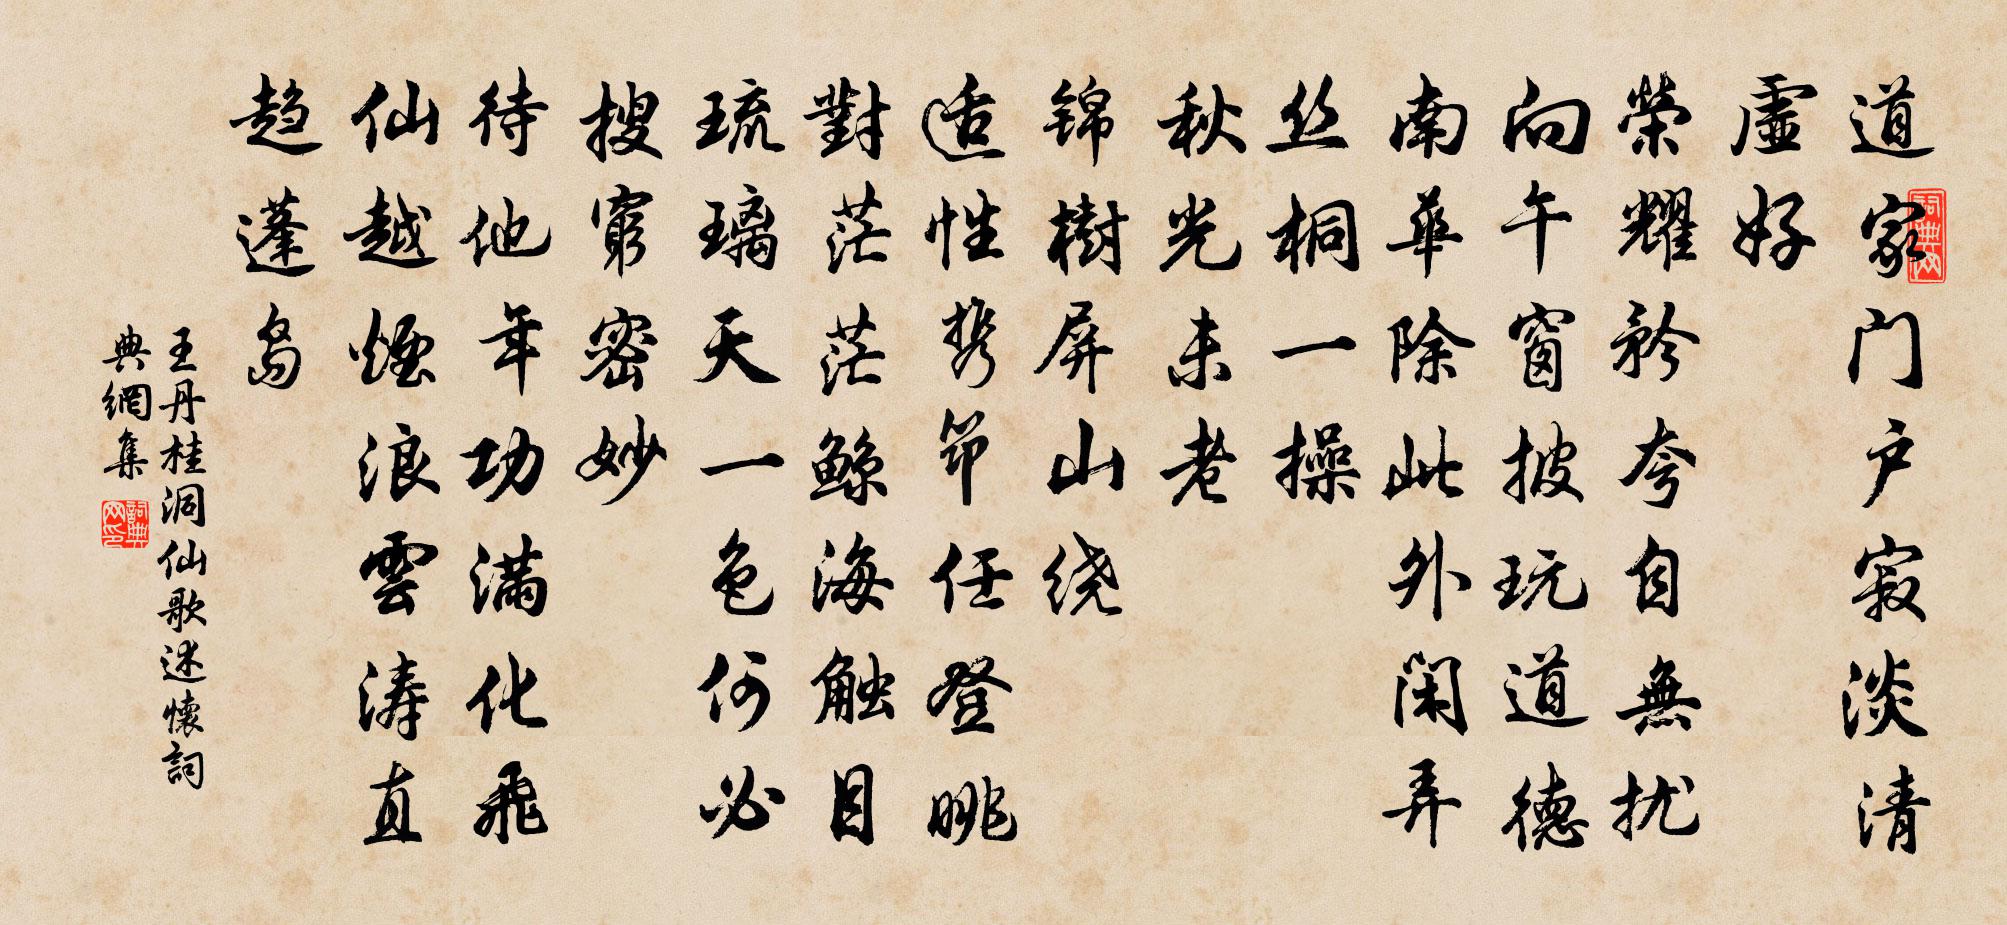 道家门户寂淡清
虛好
荣耀矜夸自無扰
向午窗披玩道德
南華除此外闲弄
丝桐一操
秋光未老
锦樹屏山绕
适性携筇任登眺
對茫茫鲸海触目
琉璃天一色何必
搜窮密妙
待他年功满化飛
仙越烟浪雲涛直
趋蓬岛
王丹桂洞仙歌述懷詞
典網集
詞典网
詞典网印